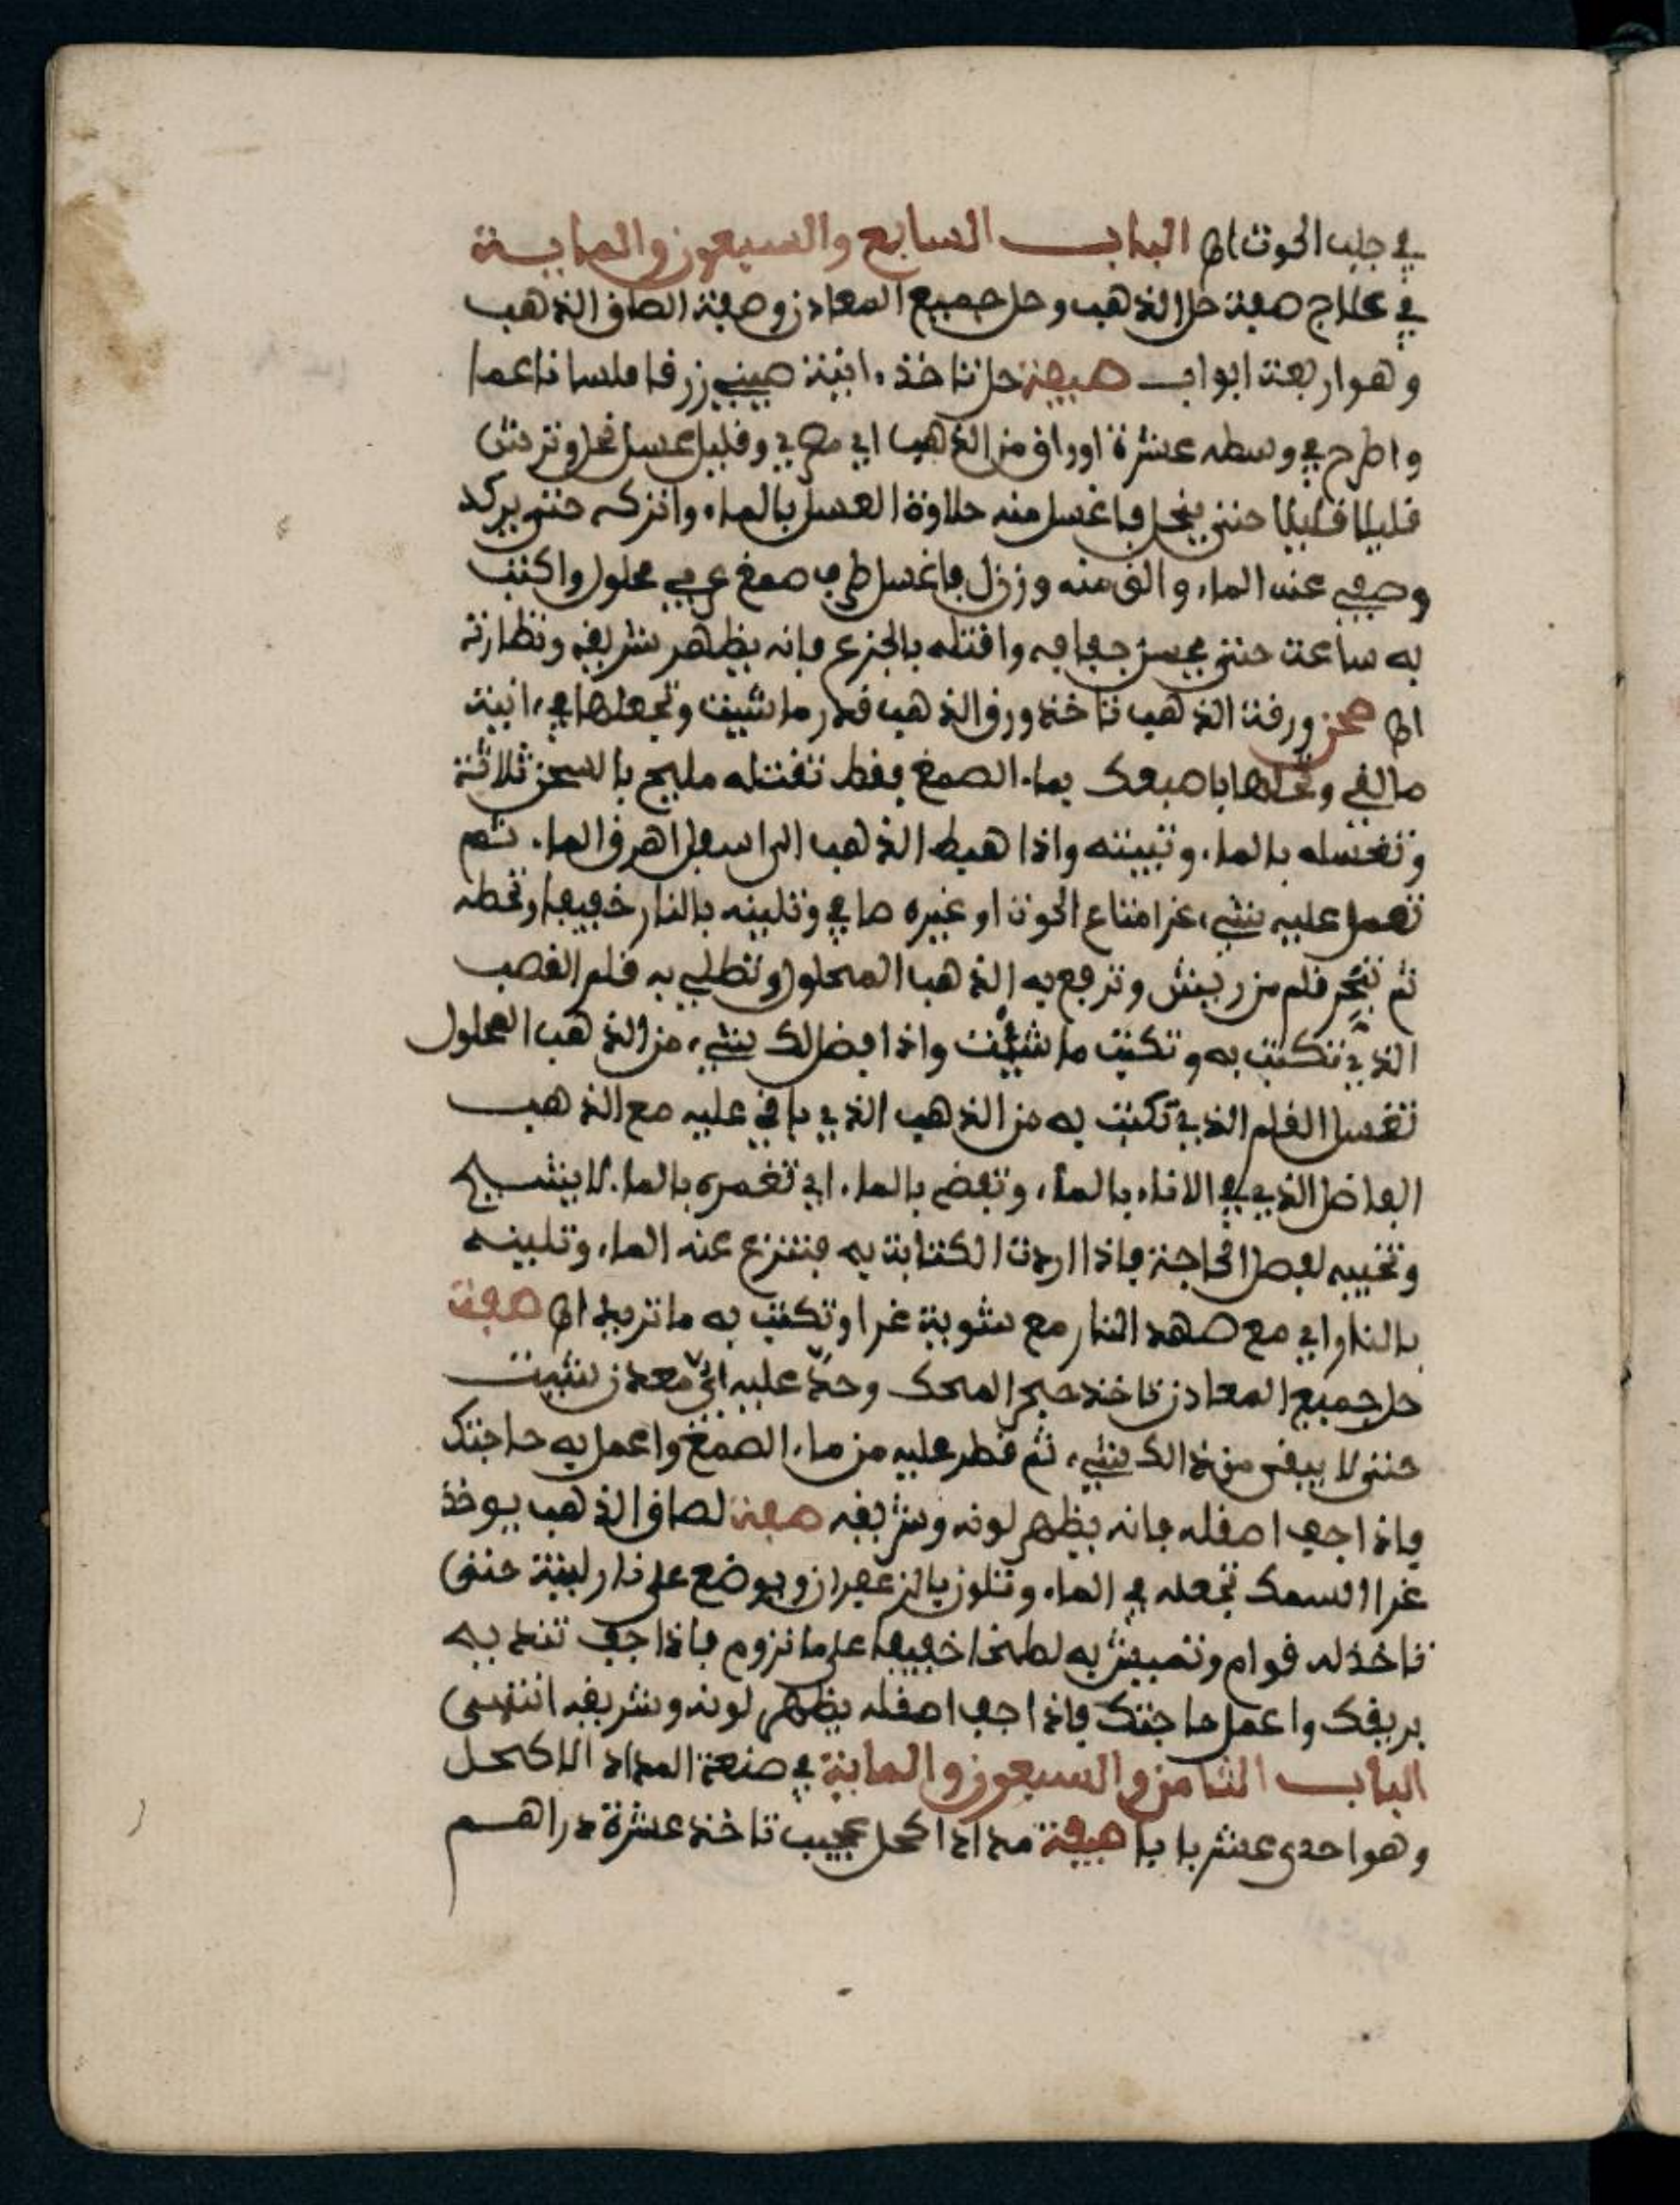 في جلب الحوت اه الباب السابع والسبعون والماية
في علاج صفة حل الذهب وحل جميع المعادن وصفة الصاق الذهب
وهو اربعة ابواب صفة حل تاخذ ءانية صيني زرقا ملسا ناعما
واطرح في وسطه عشرة اوراق من الذهب اي وقليل عسل نحل وترش
قليلا قليلا حتى ينحل فاغسل منه حلاوة العسل بالماء واتركه حتى يركد
وصفي عنه الماء والق منه وزن فاغسل صمغ عربي محلول واكتب
به ساعة حتى جفافه وافتله بالجزع فانه يظهر شريقه ونظارته
اه ورقة الذهب تاخذ ورق الذهب قدر ما شيت وتجعلها في ءانية
مالقي وتحلها باصبعك بماء الصمغ فقط تفتله مليح بالسحن ثلاثة
وتغسله بالماء وتبيته واذا هبط الذهب الى اسفل اهرق الماء ثم
تعمل عليه شيء غرا متاع الحوت او غيره صافي وتلينه بالنار خفيفا وتحطه
ثم تنجر قلم من ريش وترفع به الذهب المحلول وتطلي به قلم القصب
الذي تكتب به وتكتب ما شيت واذا فضل لك شيء من الذهب المحلول
تغسل القلم الذي تكتب به من الذهب الذي باقي عليه مع الذهب
الفاضل الذي في الاناء بالماء وتفضه بالماء اي تغمره بالماء لا ينشبح
وتخبيه لفصل الحاجة فاذا اردت الكتابة به فتنزع عنه الماء وتلينه
بالنار اي مع صهد النار مع شوية غرا وتكتب به ما تريد اه صفة
حل جميع المعادن تاخذ حجر المحك وحك عليه اي معدن شيت
حتى لا يبقى من ذالك شيء ثم قطر عليه من ماء الصمغ واعمل به حاجتك
فاذا جف اصقله فانه يظهر لونه وشريقه صفة لصاق الذهب يوخذ
غرا السمك تجعله في الماء وتلون بالزعفران ويوضع على نار لينة حتى
تاخذ له قوام به لطخا خفيفا على ما تروم فاذا جف تنديه
بريقك واعمل حاجتك فاذا جف اصقله يظهر لونه وشريقه انتهى
الباب الثامن والسبعون والماية في صنعة المداد الاكحل
وهو احدى عشر بابا صفة مداد اكحل عجيب تاخذ عشرة دراهم